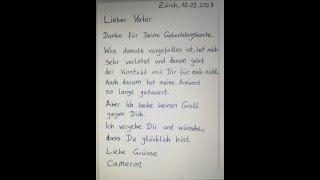 Zürich, 10.09.2023
Lieber Vater
Danke für Deine Geburtstagskarte.
Was damals vorgefallen ist, hat mich
sehr verletzt und darum geht
der Kontakt mit Dir für mich nicht.
Auch darum hat meine Antwort
so lange gedauert.
Aber ich habe keinen Groll
gegen Dich.
Ich vergebe Dir und wünsche,
dass Du glücklich bist.
Liebe Grüsse
Cameron